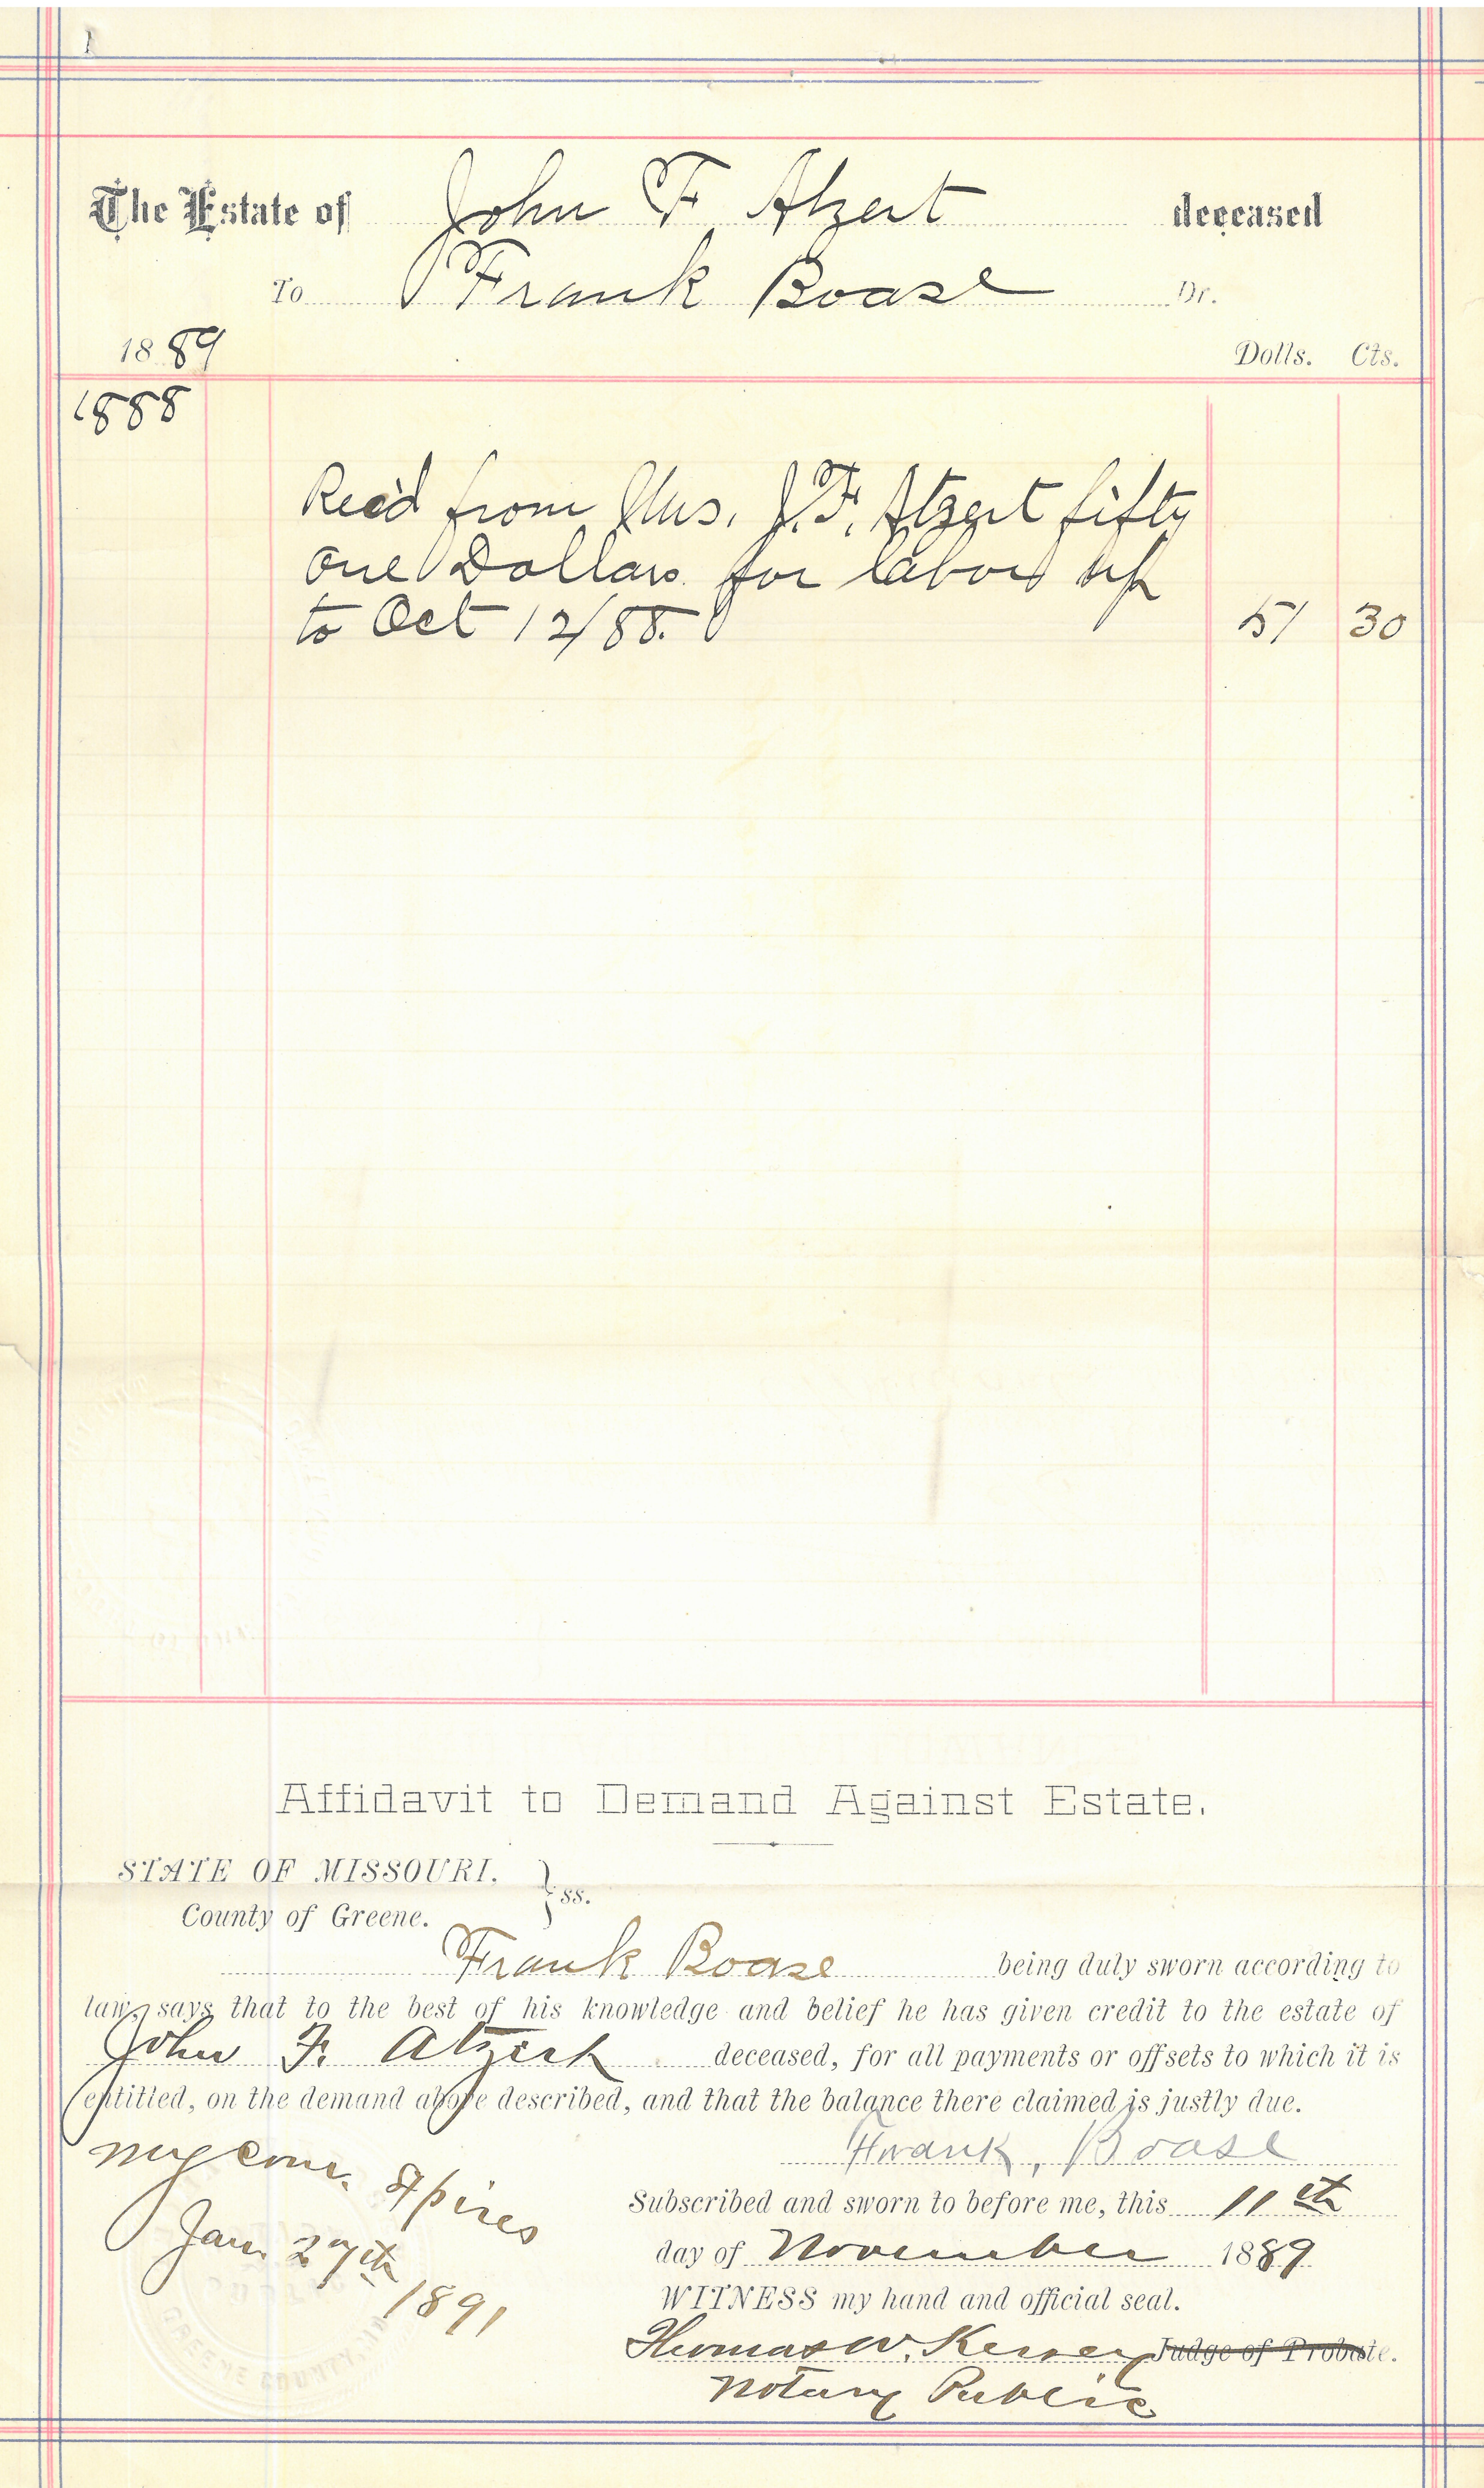 The Estate of John F Atzert deceased
To Frank Boase Dr.
1889 Dolls. Cts.
1888
Rec'd from Mrs. J. F. Atzert fifty
one Dollars for labor up
to Oct 12/88. 51 30
Affidavit to Demand Against Estate.
STATE OF MISSOURI,
County of Greene. } ss.
Frank Boase being duly sworn according to
law, says that to the best of his knowledge and belief he has given credit to the estate of
John F. Atzert deceased, for all payments or offsets to which it is
entitled, on the demand above described, and that the balance there claimed is justly due.
Frank, Boase
My com. Expires
Jan. 27th
1891
Subscribed and sworn to before me, this 11th
day of November 1889
WITNESS my hand and official seal.
Thomas W. Kersey Judge of Probate.
Notary Public